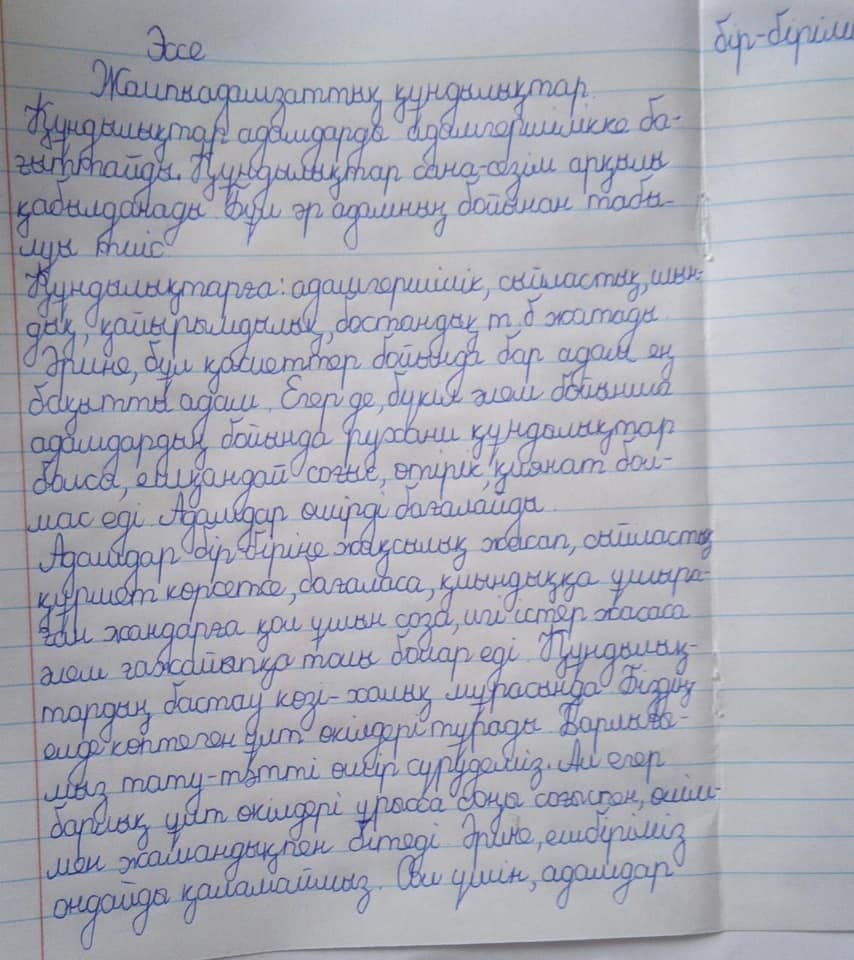 Эссе
Жалпыадамзаттық құндылықтар.
Құндылықтар адамдарды адамгершілікке ба-
ғыттайды. Құндылықтар сана-сезім арқылы
қабылданады. Бұл әр адамның бойынан табы-
луы тиіс.
Құндылықтарға: адамгершілік, сыйластық, шын-
дық, қайырымдылық, бостандық т.б жатады.
Әрине, бұл қасиеттер бойында бар адам ең
бақытты адам. Егер де, бүкіл әлем бойынша
адамдардың бойында рухани құндылықтар
болса, ешқандай соғыс, өтірік, қиянат бол-
мас еді. Адамдар өмірді бағалайды.
Адамдар бір-біріне жақсылық жасап, сыйластық
құрмет көрсетсе, бағаласа, қиындыққа ұшыра-
ған жандарға қол ұшын созса, игі істер жасаса
әлем ғажайыпқа толы болар еді. Құндылық-
тардың бастау көзі-халық мұрасында. Біздің
елде көптеген ұлт өкілдері тұрады. Барлығы-
мыз тату-тәтті өмір сүрудеміз. Ал егер
барлық ұлт өкілдері ұрысса соңы соғыспен, өлім-
мен жамандықпен бітеді. Әрине, ешбіріміз
ондайды қаламаймыз. Сол үшін, адамдар